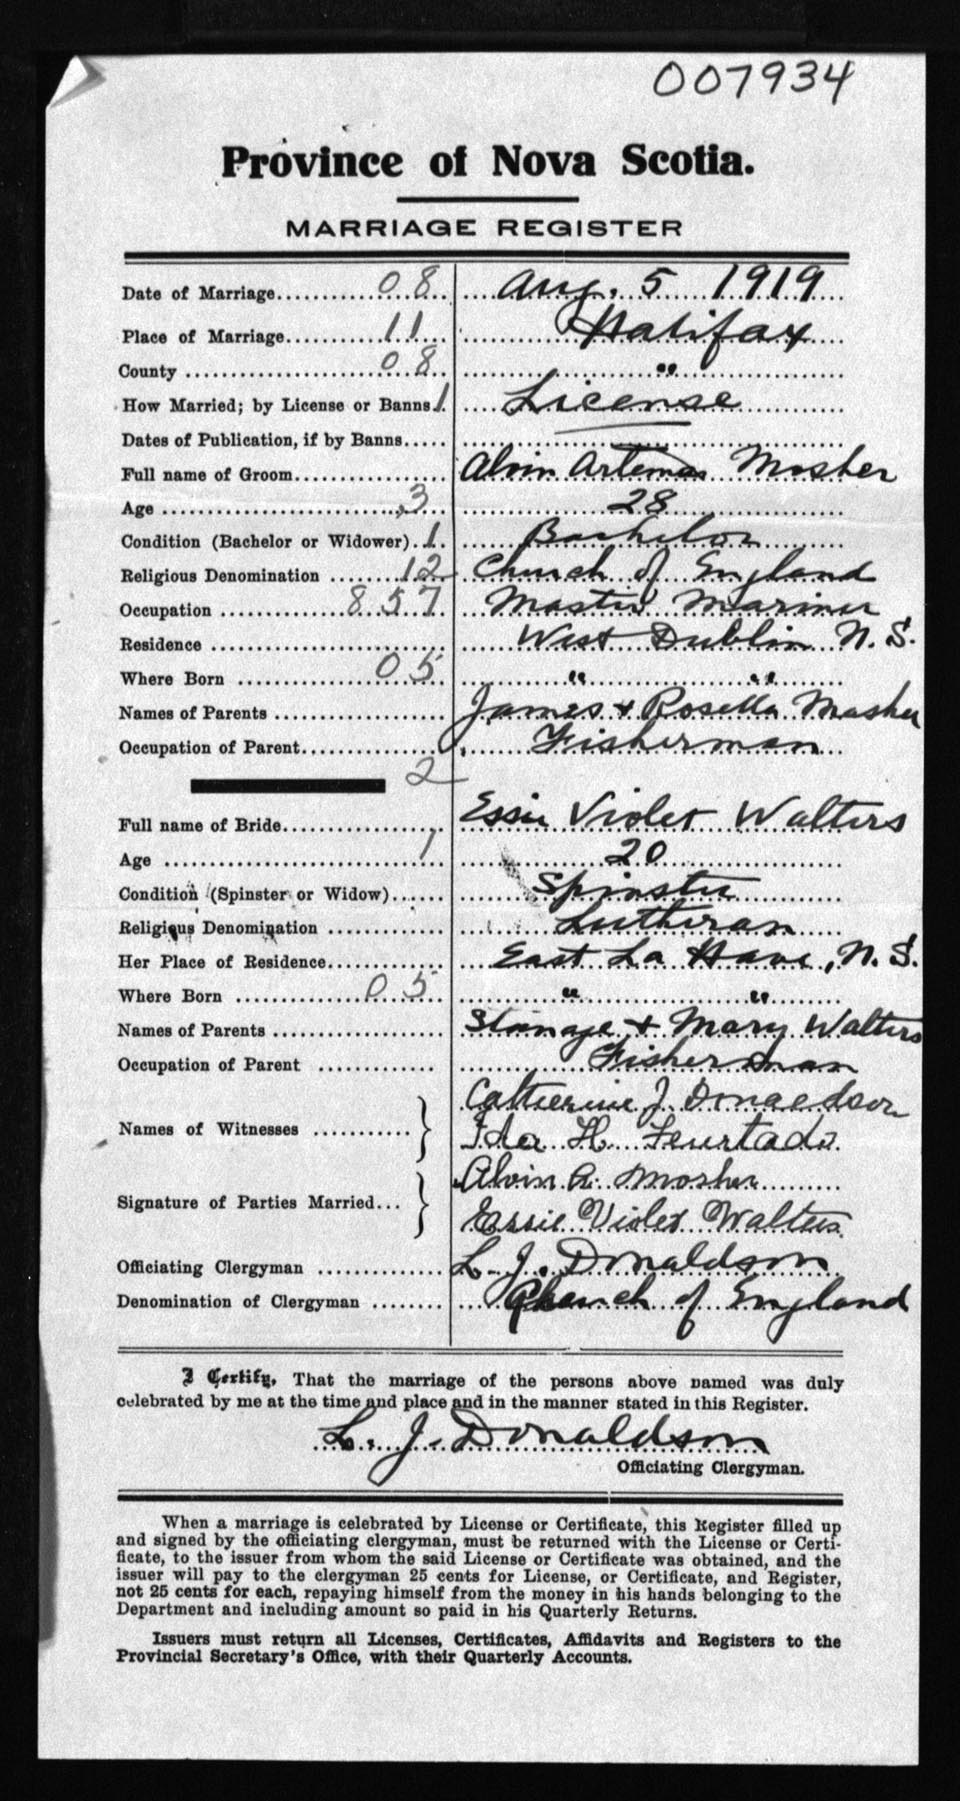 007934
Province of Nova Scotia.
MARRIAGE REGISTER
Date of Marriage 08 Aug. 5 1919
Place of Marriage 11 Halifax
County 08 "
How Married; by License or Banns 1 License
Dates of Publication, if by Banns
Full name of Groom Alvin Artemas Mosher
Age 3 28
Condition (Bachelor or Widower) 1 Bachelor
Religious Denomination 12 Church of England
Occupation 857 Master Mariner
Residence West Dublin N. S.
Where Born 05 " "
Names of Parents James + Rosella Mosher
Occupation of Parent Fisherman
2
Full name of Bride Essie Violet Walters
Age 1 20
Condition (Spinster or Widow) Spinster
Religious Denomination Lutheran
Her Place of Residence East La Have, N. S.
Where Born 05 " "
Names of Parents + Mary Walters
Occupation of Parent Fisherman
Names of Witnesses Catherine J. Donaldson
Ida H. Feurtado
Signature of Parties Married Alvin A. Mosher
Essie Violet Walters
Officiating Clergyman L. J. Donaldson
Denomination of Clergyman Church of England
I Certify, That the marriage of the persons above named was duly
celebrated by me at the time and place and in the manner stated in this Register.
L. J. Donaldson
Officiating Clergyman.
When a marriage is celebrated by License or Certificate, this Register filled up
and signed by the officiating clergyman, must be returned with the License or Certi-
ficate, to the issuer from whom the said License or Certificate was obtained, and the
issuer will pay to the clergyman 25 cents for License, or Certificate, and Register,
not 25 cents for each, repaying himself from the money in his hands belonging to the
Department and including amount so paid in his Quarterly Returns.
Issuers must return all Licenses, Certificates, Affidavits and Registers to the
Provincial Secretary's Office, with their Quarterly Accounts.